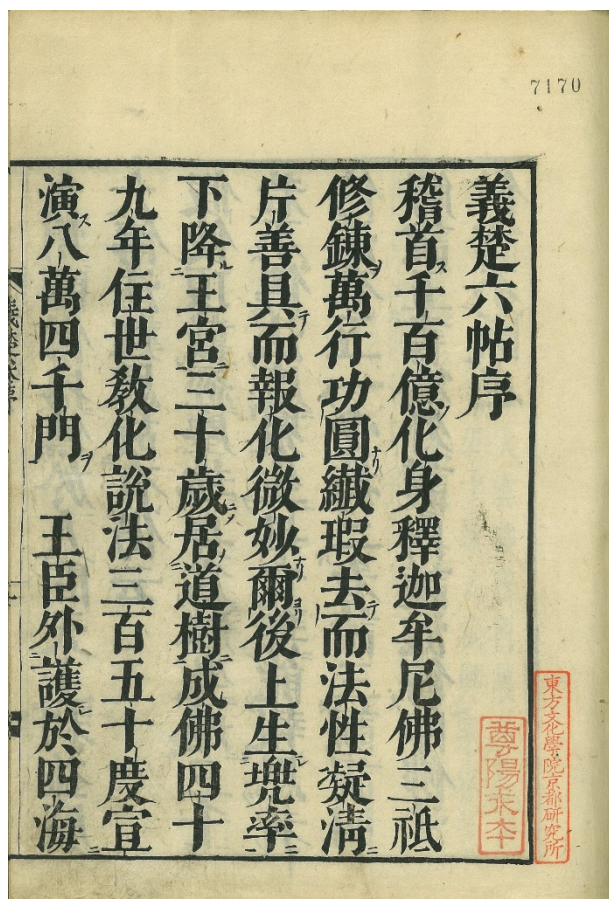 7170
義楚六帖序
稽首千百億化身釋迦牟尼佛三祇
修錬萬行功圓纎瑕去而法性凝清
片善具而報化微妙爾後上生兠率
下降王宮三十歲居道樹成佛四十
九年住世教化說法三百五十度宣
演八萬四千門　王臣外護於四海
東方文化學院京都研究所